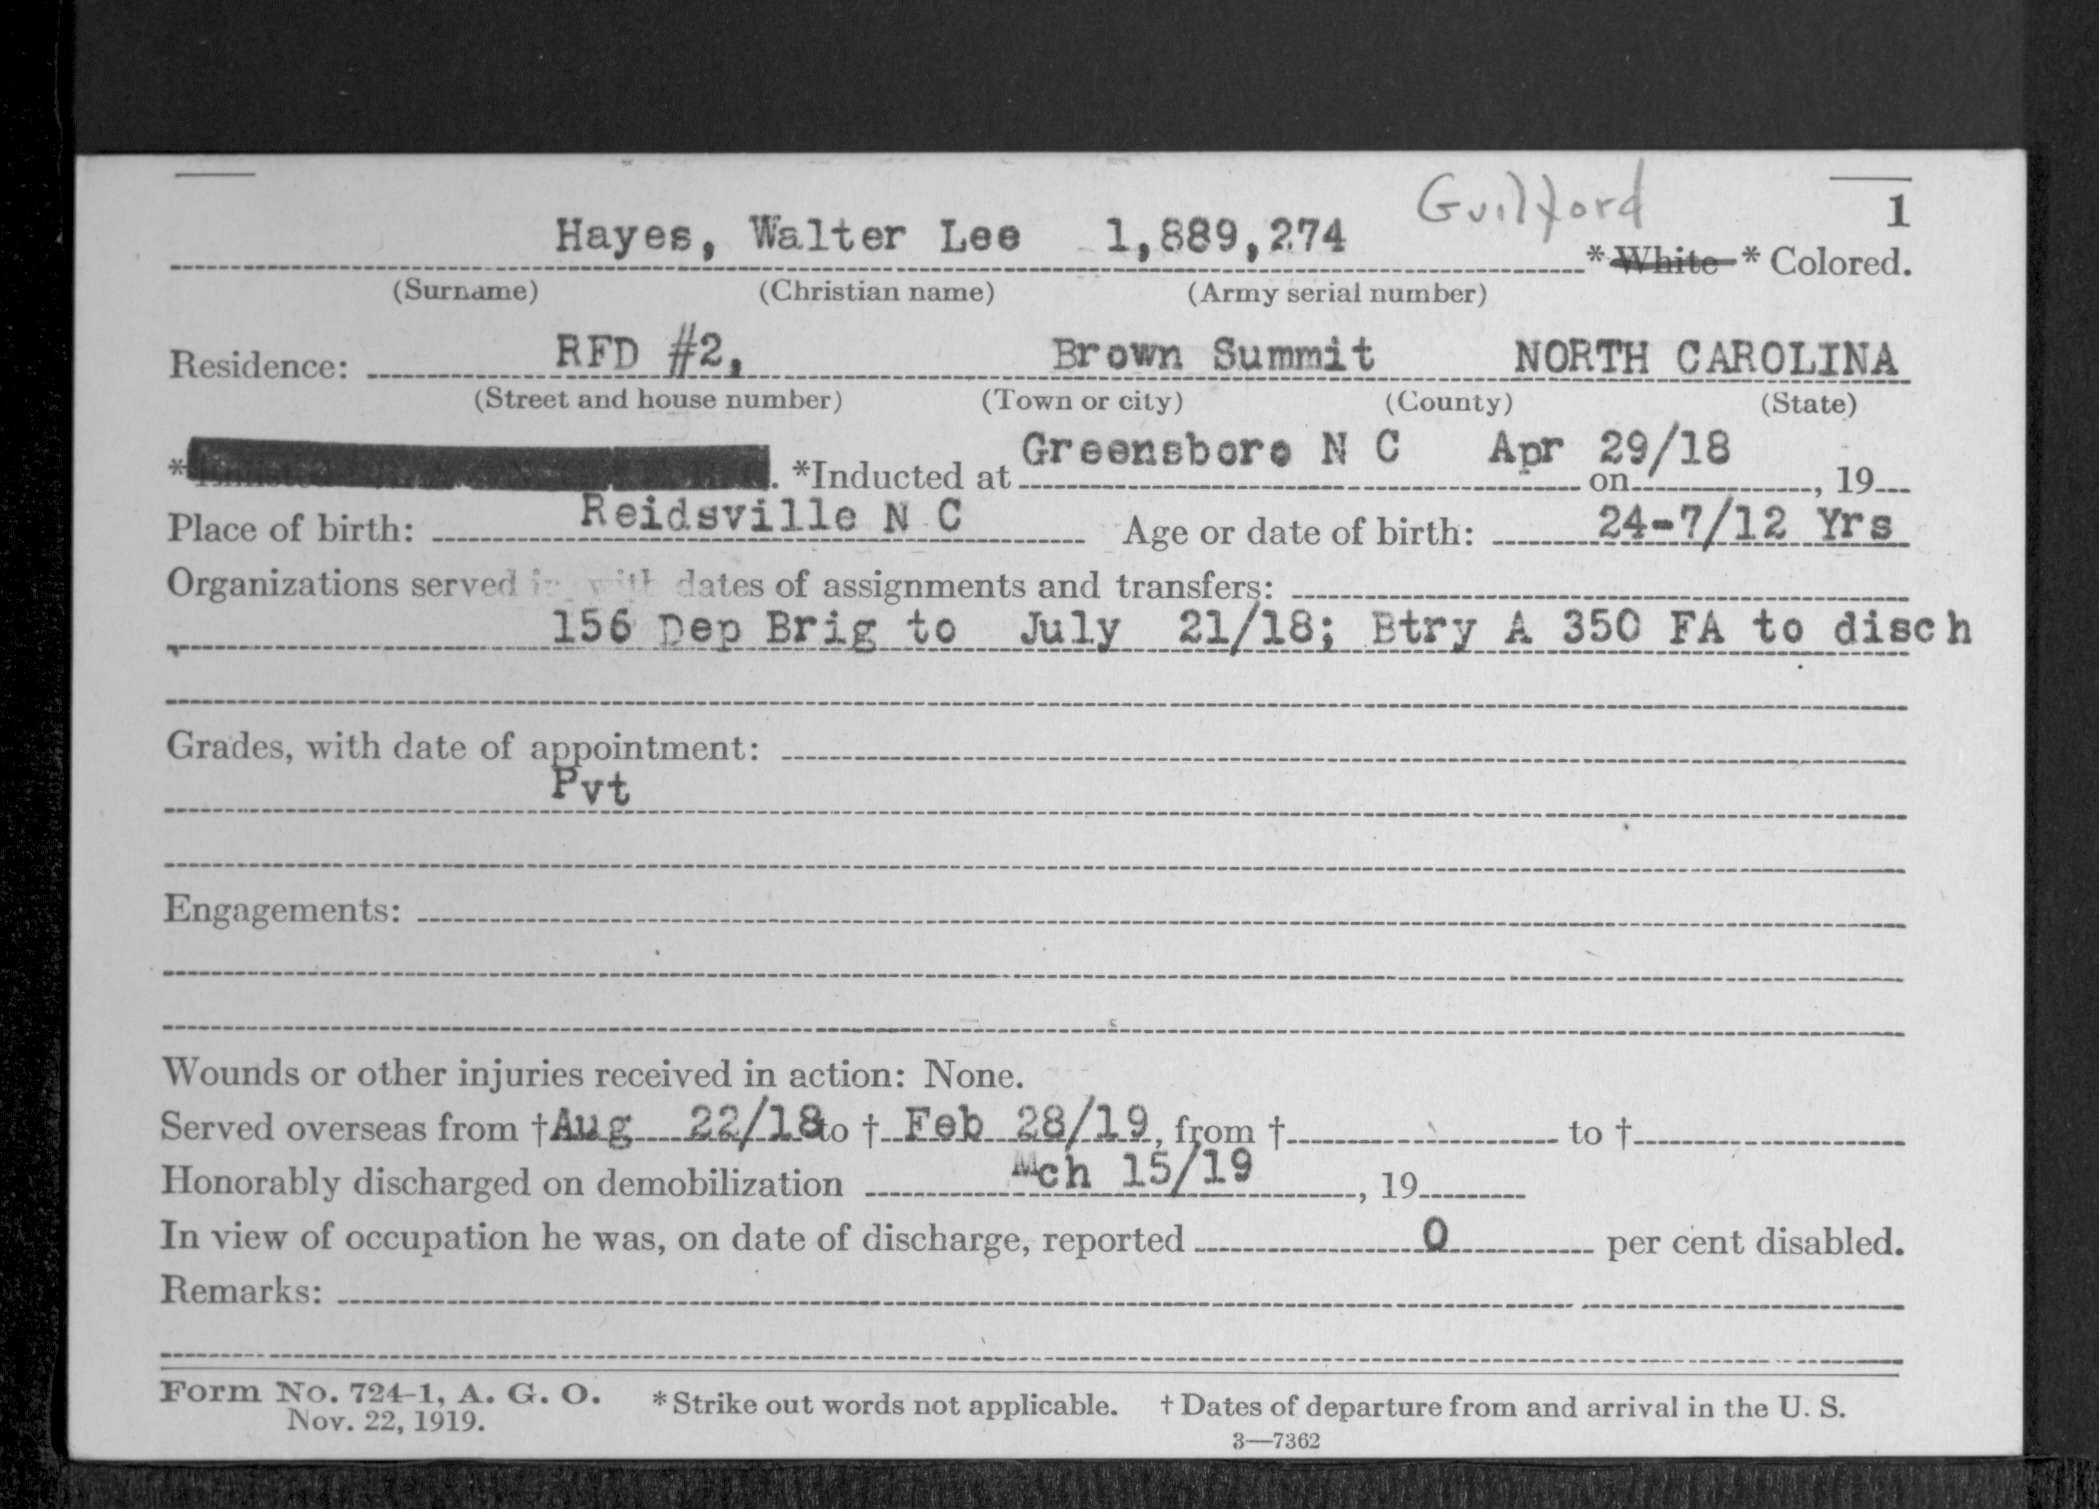 Guilford 1
Hayes, Walter Lee 1,889,274 * White * Colored.
(Surname) (Christian name) (Army serial number)
Residence: RFD #2, Brown Summit NORTH CAROLINA
(Street and house number) (Town or city) (County) (State)
* . *Inducted at Greensboro N C on Apr 29/18, 19
Place of birth: Reidsville N C Age or date of birth: 24-7/12 Yrs
Organizations served in, with dates of assignments and transfers:
156 Dep Brig to July 21/18; Btry A 350 FA to disch
Grades, with date of appointment:
Pvt
Engagements:
Wounds or other injuries received in action: None.
Served overseas from †Aug 22/18 to † Feb 28/19, from † to †
Honorably discharged on demobilization Mch 15/19, 19
In view of occupation he was, on date of discharge, reported 0 per cent disabled.
Remarks:
Form No. 724-1, A. G. O. *Strike out words not applicable. † Dates of departure from and arrival in the U. S.
Nov. 22, 1919.
3—7362